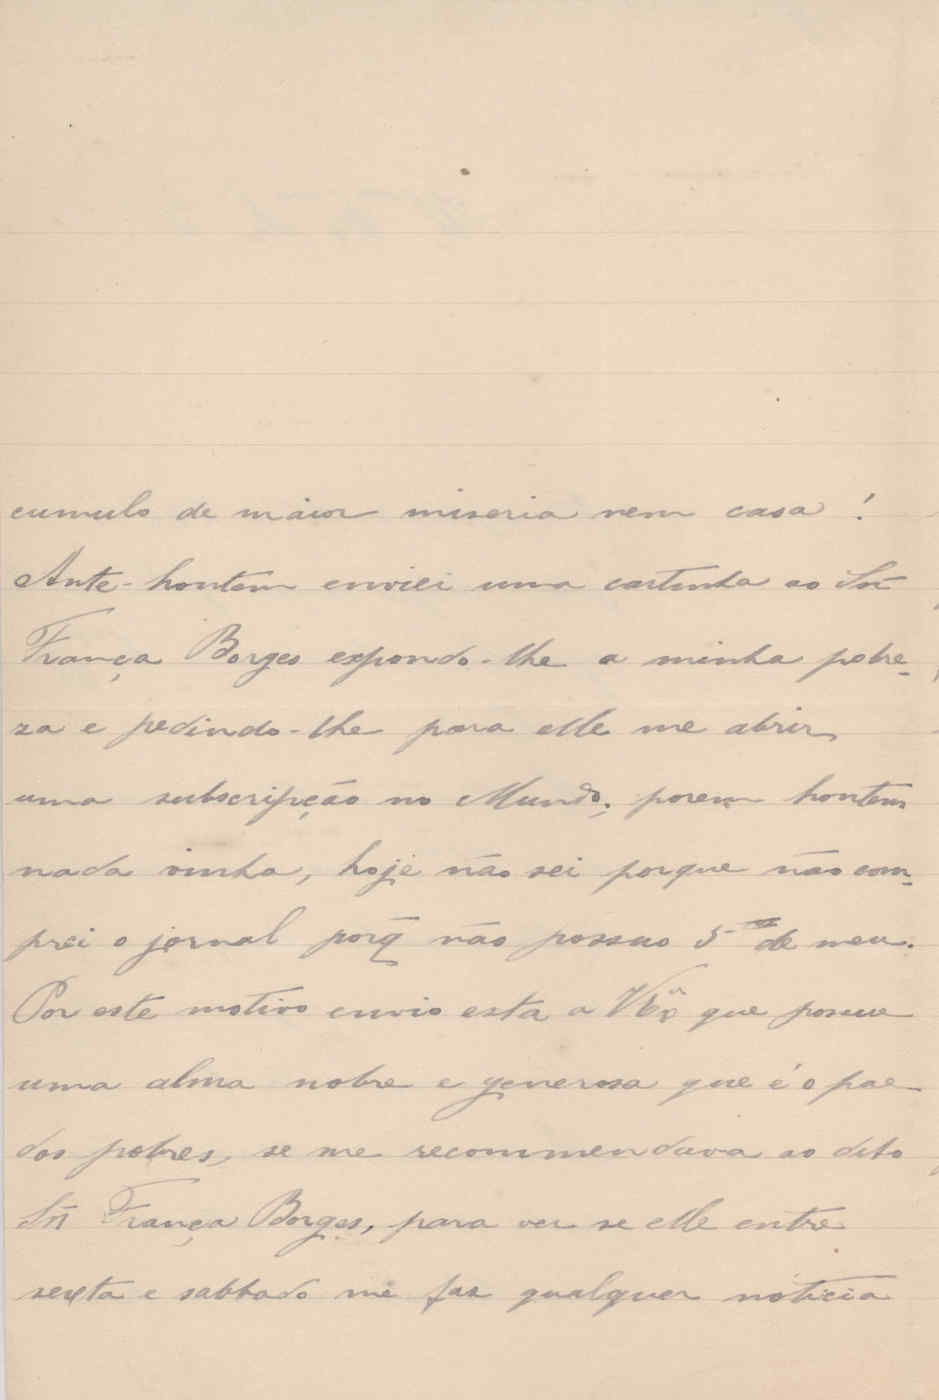 cumulo de maior miseria nem casa!
Ante-hontem enviei uma cartinha ao Snr
França Borges expondo-lhe a minha pobre-
za e pedindo-lhe para elle me abrir
uma subscripção no Mundo; porem hontem
nada vinha, hoje não sei porque não com-
prei o jornal porq̃ não possuo 5 de meu.
Por este motivo envio esta a VEx.ª que possue
uma alma nobre e generosa que é o pae
dos pobres, se me recommendava ao dito
Snr França Borges, para ver se elle entre
sexta e sabbado me faz qualquer noticia